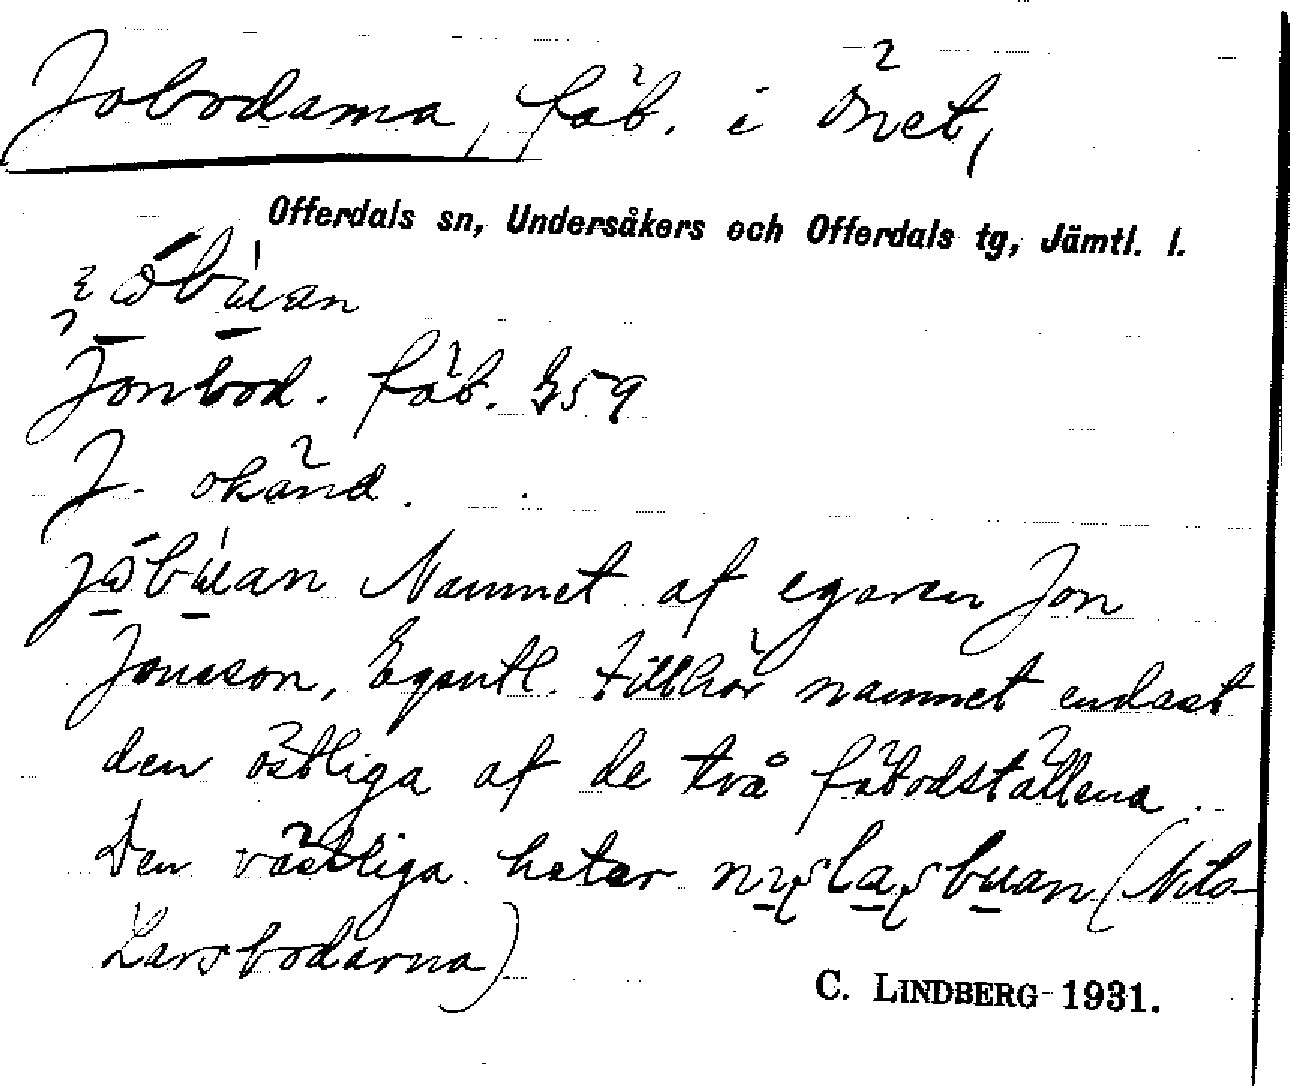 Jobodarna, fäb. i Önet,
Offerdals sn, Undersåkers och Offerdals tg, Jämtl. l.
Jonbod. fäb. 359
J. okänd.
Namnet af egaren Jon
Jonsson, Egentl. tillhör namnet endast
den östliga af de två fäbodställena.
Den västliga heter (Nils-
Larsbodarna)
C. LINDBERG 1931.